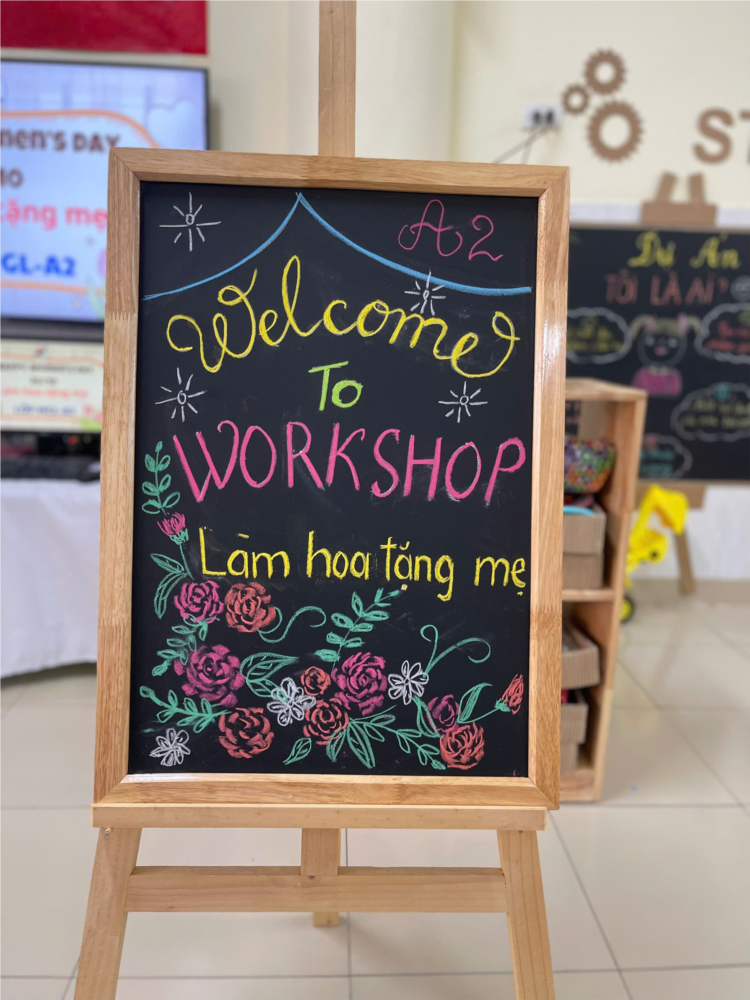 A2
Welcome
To
WORKSHOP
Làm hoa tặng mẹ
men's DAY
tặng mẹ
GL-A2
ST
Dự Án
TÔI LÀ AI?